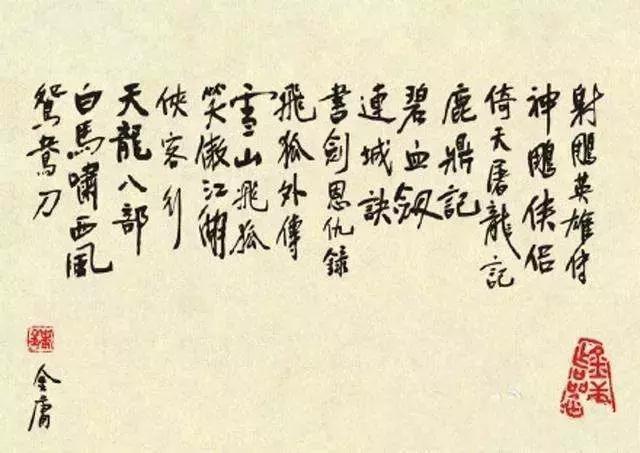 射鵰英雄傳
神鵰俠侶
倚天屠龍記
鹿鼎記
碧血劍
連城訣
書劍恩仇錄
飛狐外傳
雪山飛狐
笑傲江湖
俠客行
天龍八部
白馬嘯西風
鴛鴦刀
金庸